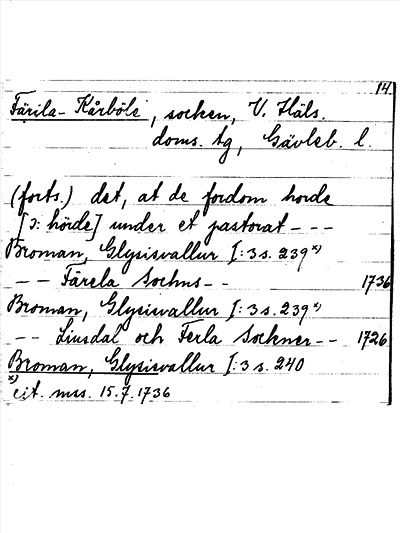 14.
Färila-Kårböle, socken, V. Häls.
doms. tg, Gävleb. l.
(forts.) det, at de fordom horde
[ɔ: hörde] under et pastorat ---
Broman, Glysisvallur I:3 s. 239 x)
-- Färela Sochns -- 1736
Broman, Glysisvallur I:3 s. 239 x)
-- Liusdal och Ferla Sockner -- 1726
Broman, Glysisvallur I:3 s. 240
x) cit. mss. 15.7.1736